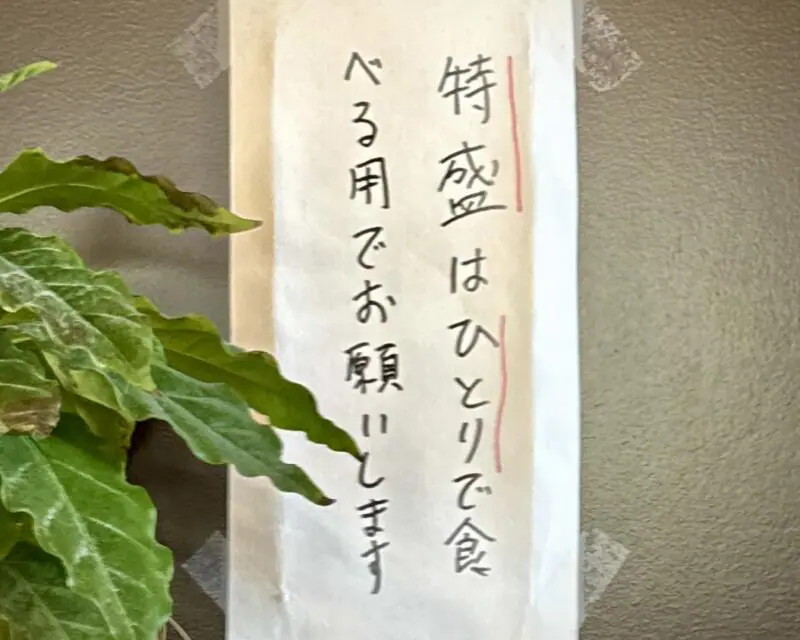 特盛はひとりで食
べる用でお願いします